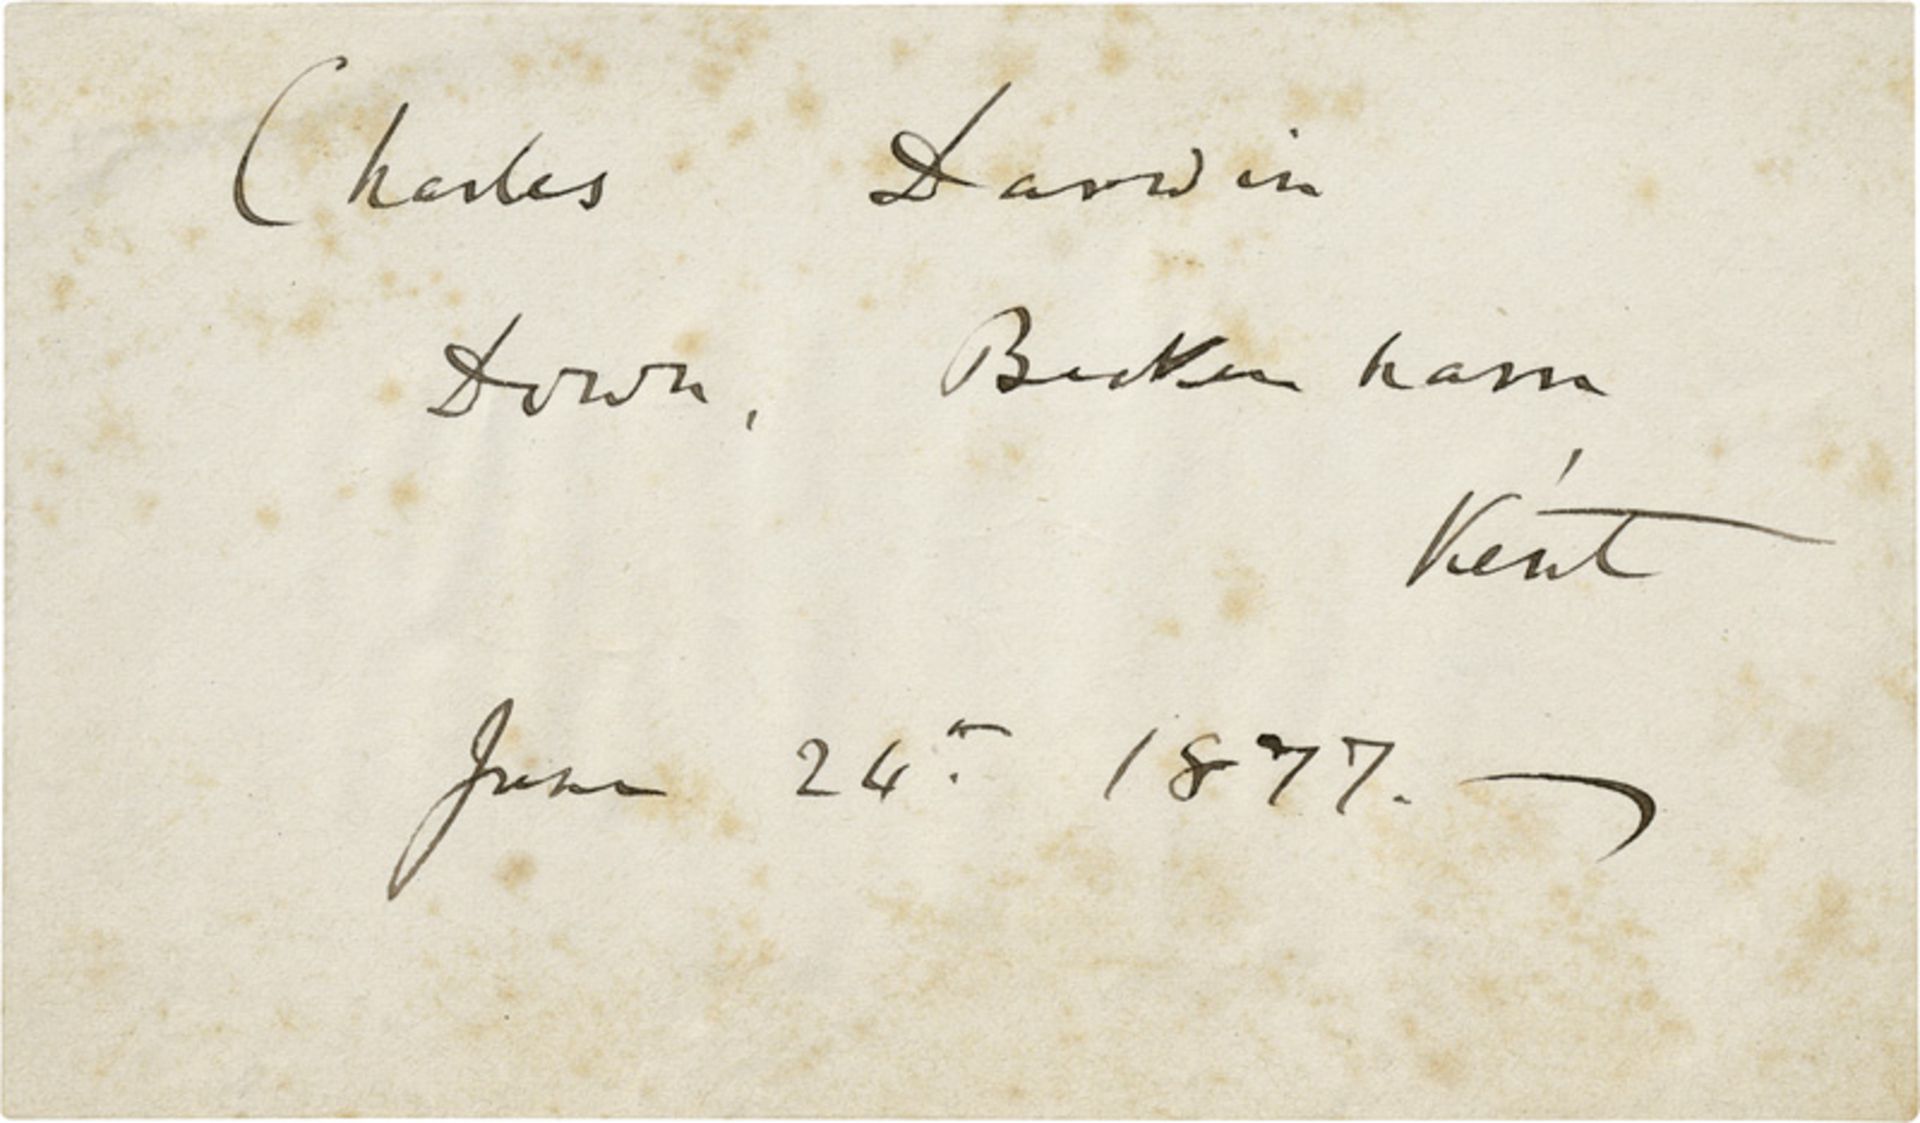 Charles Darwin
Down, Beckenham
Kent
June 24th 1877.